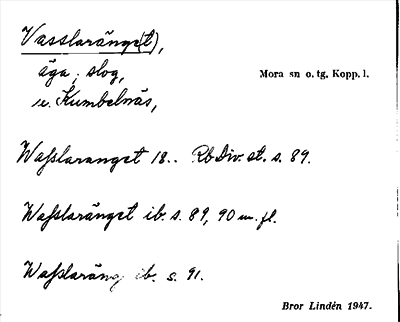 Vasslaränge(t),
äga, slog,
Mora sn o. tg. Kopp. l.
u. Kumbelnäs,
Waſslaranget 18.. Rb Div. st. s. 89.
Waſslaränget ib. s. 89, 90 m. fl.
Waſslaräng ib. s. 91.
Bror Lindén 1947.